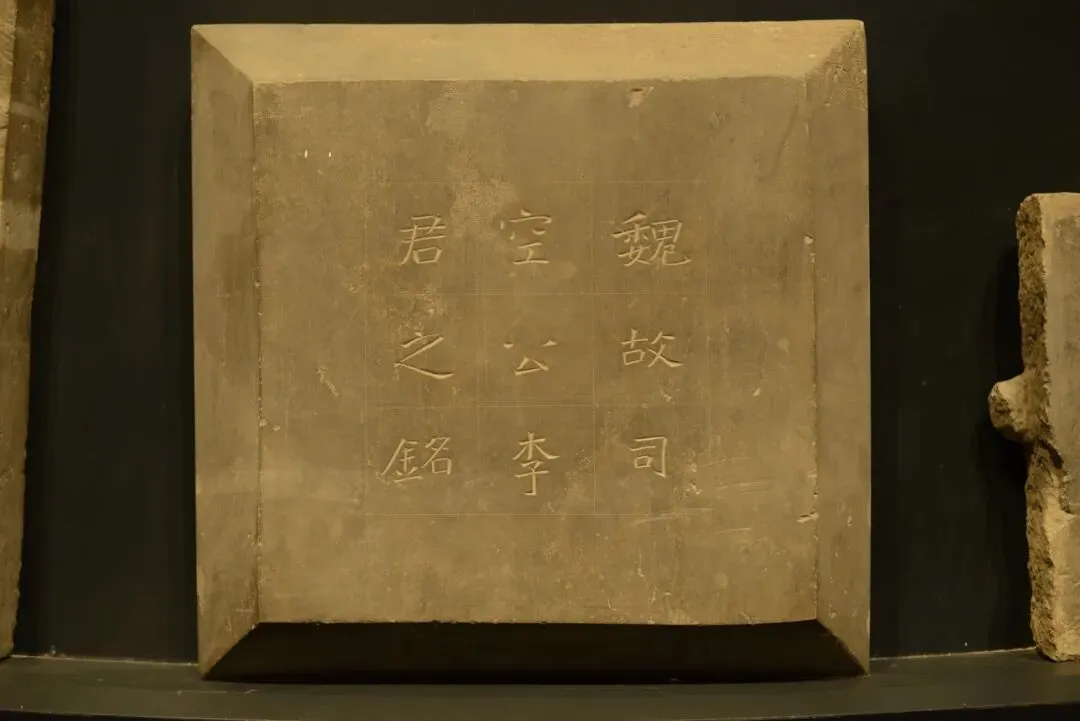 魏故司
空公李
君之銘